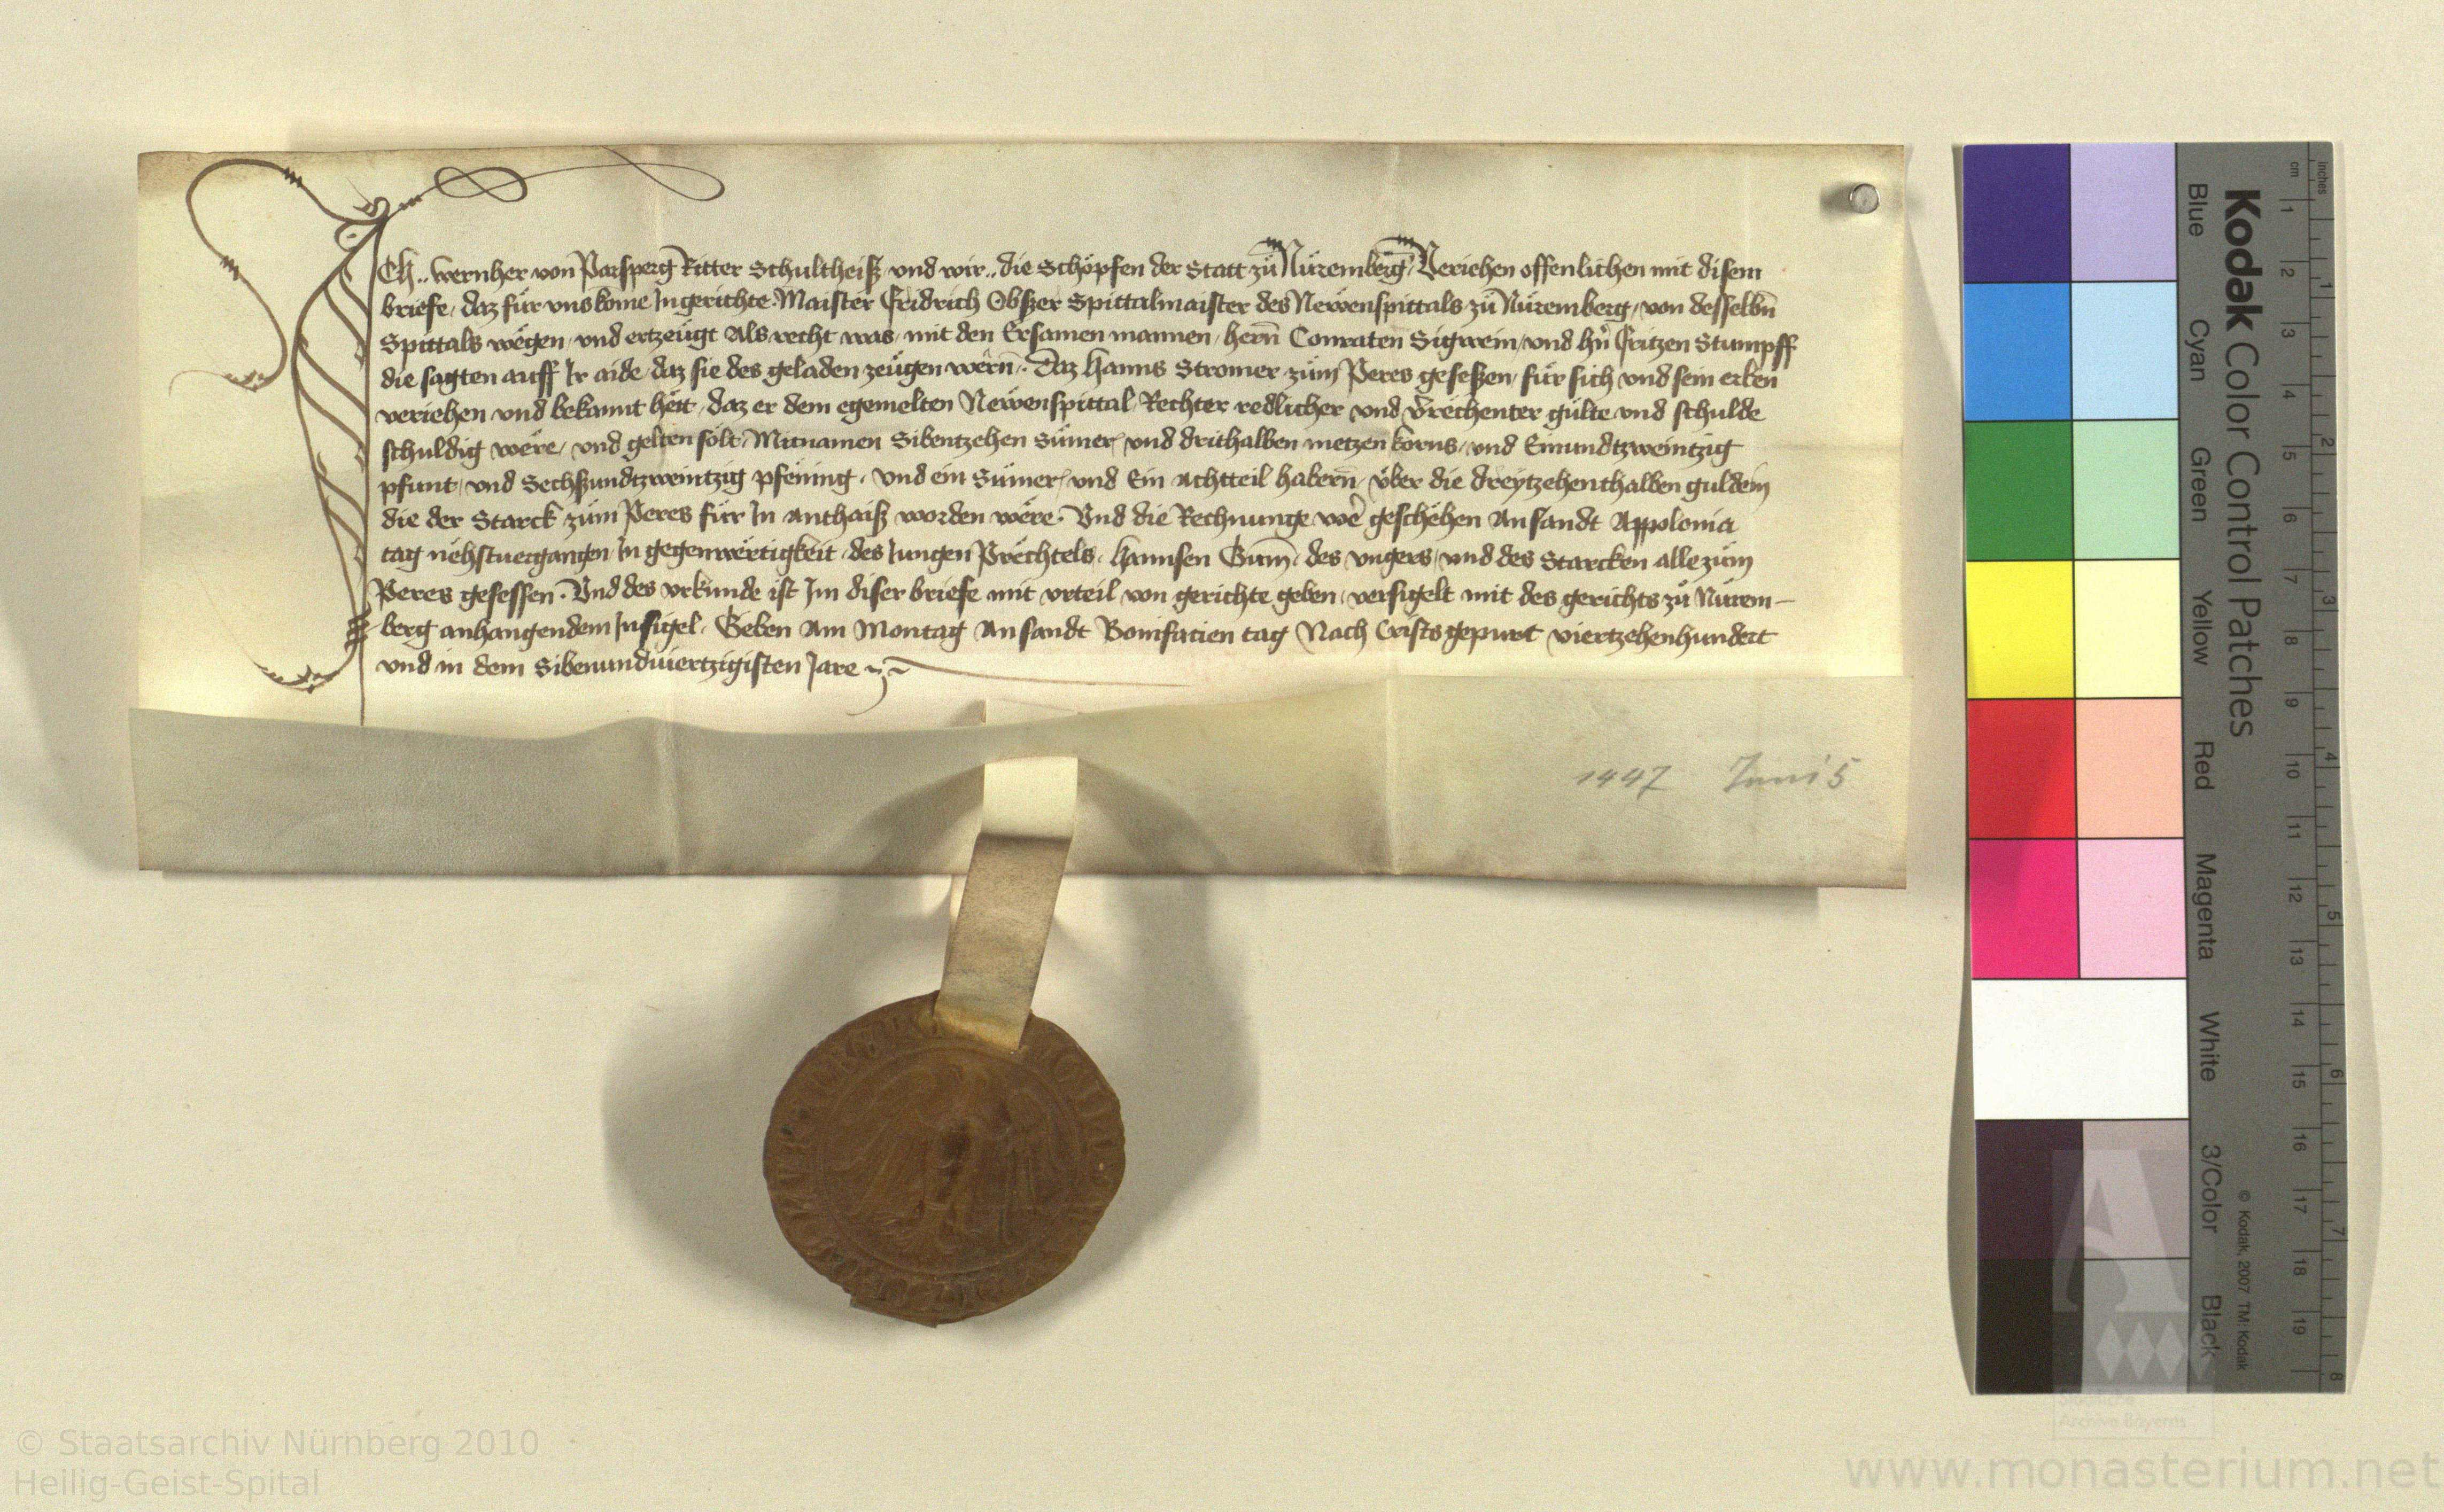 ICh .. Wernher von Parsperg Ritter Schultheiß und wir .. die Schöpfen der Statt zů Nüremberg / Veriehen offenlichen mit disem
briefe / daz für uns kome In gerichte Maister Fridrich Obßer Spittalmaister des Newenspittals zů Nüremberg / von desselbn̄
Spittals wëgen / und ertzeugt Als recht was / mit den Ersamen mannen / hern̄ Conraten Sigwein / und hn̄ Fritzen Stumpff
die sagten auff Ir aide / daz sie des geladen zeügen wërn̄ · Daz Hanns Stromer zům Peres geseßen / für sich und sein erben
veriehen und bekannt hëtt / daz er dem egemelten Newenspittal Rechter redlicher und v̄rechenter gülte und schulde
schuldig wëre / und gelten sölt / Mitnamen Sibentzehen Sümer / und drithalben metzen korns / und Einundtzweintzig
pfunt / und Sechßundtzweintzig pfening / und ein Sümer / und Ein Achtteil habern̄ / über die dreytzehenthalben guldein
die der Starck zům Peres für In anthaiß worden wëre · Und die Rechnunge wë geschëhen An sandt Appolonia
tag nëhstuergangen / In gegenwërtigkeit / des Jungen Prëchtels / Hannsen Gum̄ / des ungers / und des Starcken alle zům
Peres gesessen · Und des urkunde ist Im diser briefe mit urteil von gerichte geben / versigelt mit des gerichts zů Nürem-
berg anhangendem Insigel / Geben Am Montag An sandt Bonifacien tag Nach Crists gepurt viertzehenhundert
und in dem Sibenundviertzigisten Jare
1447 Juni 5
Kodak Color Control Patches
Blue Cyan Green Yellow Red Magenta White 3/Color Black
© Kodak, 2007 TM: Kodak
cm 1 2 3 4 5 6 7 8 9 10 11 12 13 14 15 16 17 18 19
inches 1 2 3 4 5 6 7 8
Staatliche
Archive Bayerns
© Staatsarchiv Nürnberg 2010
Heilig-Geist-Spital
www.monasterium.net